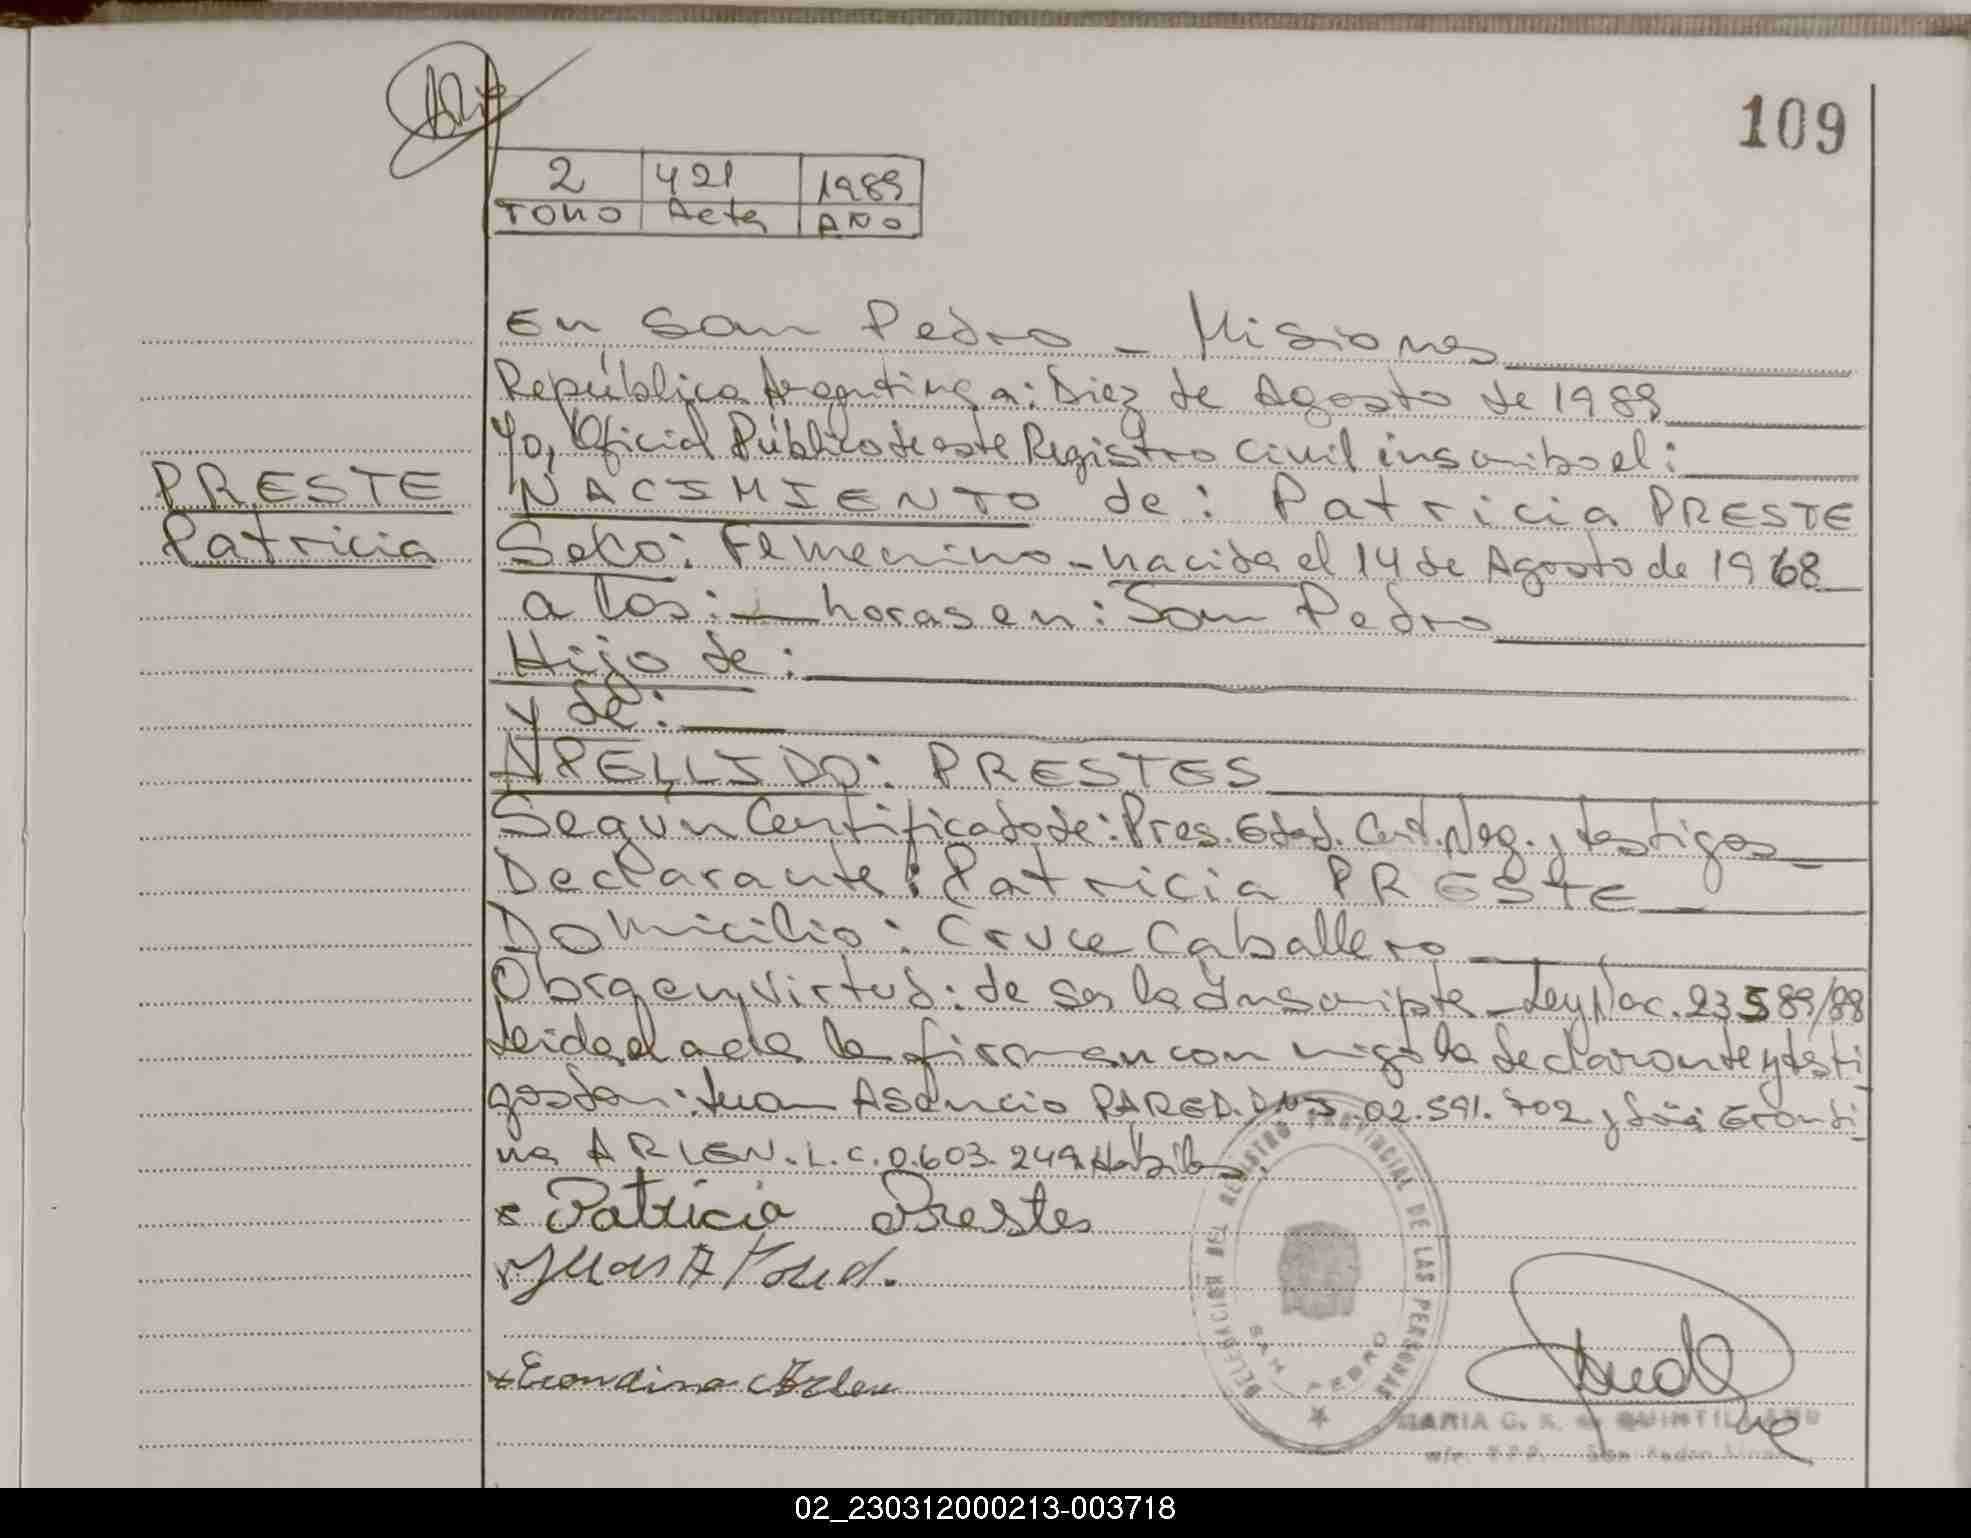 109
2 421 1989
TOMO Acta AÑO
En San Pedro - Misiones
República Argentina a: Diez de Agosto de 1989
Yo, Oficial Público de este Registro Civil inscribo el:
PRESTE
NACIMIENTO de: Patricia PRESTE
Patricia
Sexo: Femenino - nacida el 14 de Agosto de 1968
a las: — horas en: San Pedro
Hijo de:
y de:
APELLIDO: PRESTES
Según Certificado de: Pres. Edad. Cert. Neg. y testigos
Declarante: Patricia PRESTE
Domicilio: Cruce Caballero
Obra en virtud: de ser la Inscripta - Ley Nac. 23589/88
Leida el acta la firman con migo la declarante y testi
gos Don: Juan Asencio PARED. DNI. 02.591.702 y Erondi
na ARLEN. L.C. 0.603.249. Hábiles.
x Patricia Prestes
Juan A Pared.
x Erondina Arlen
DELEGACION DEL REGISTRO PROVINCIAL DE LAS PERSONAS
SAN PEDRO
MARIA G. K. de QUINTILIANO
02_230312000213-003718